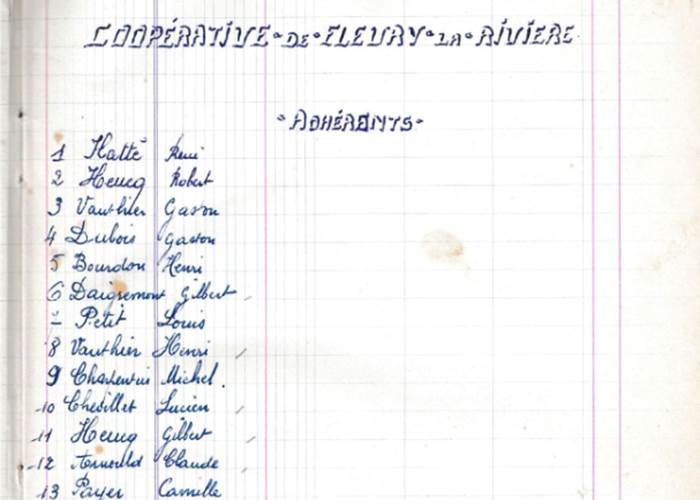 COOPÉRATIVE - DE - FLEURY - LA - RIVIERE
- ADHÉRENTS -
1 Hatté René
2 Heucq Robert
3 Vauthier Gaston
4 Dubois Gaston
5 Bourdon Henri
6 Daigremont Gilbert
Petit Louis
8 Vauthier Henri
9 Michel
10 Chevillet Lucien
11 Heucq Gilbert
12 Arnould Claude
13 Payer Camille